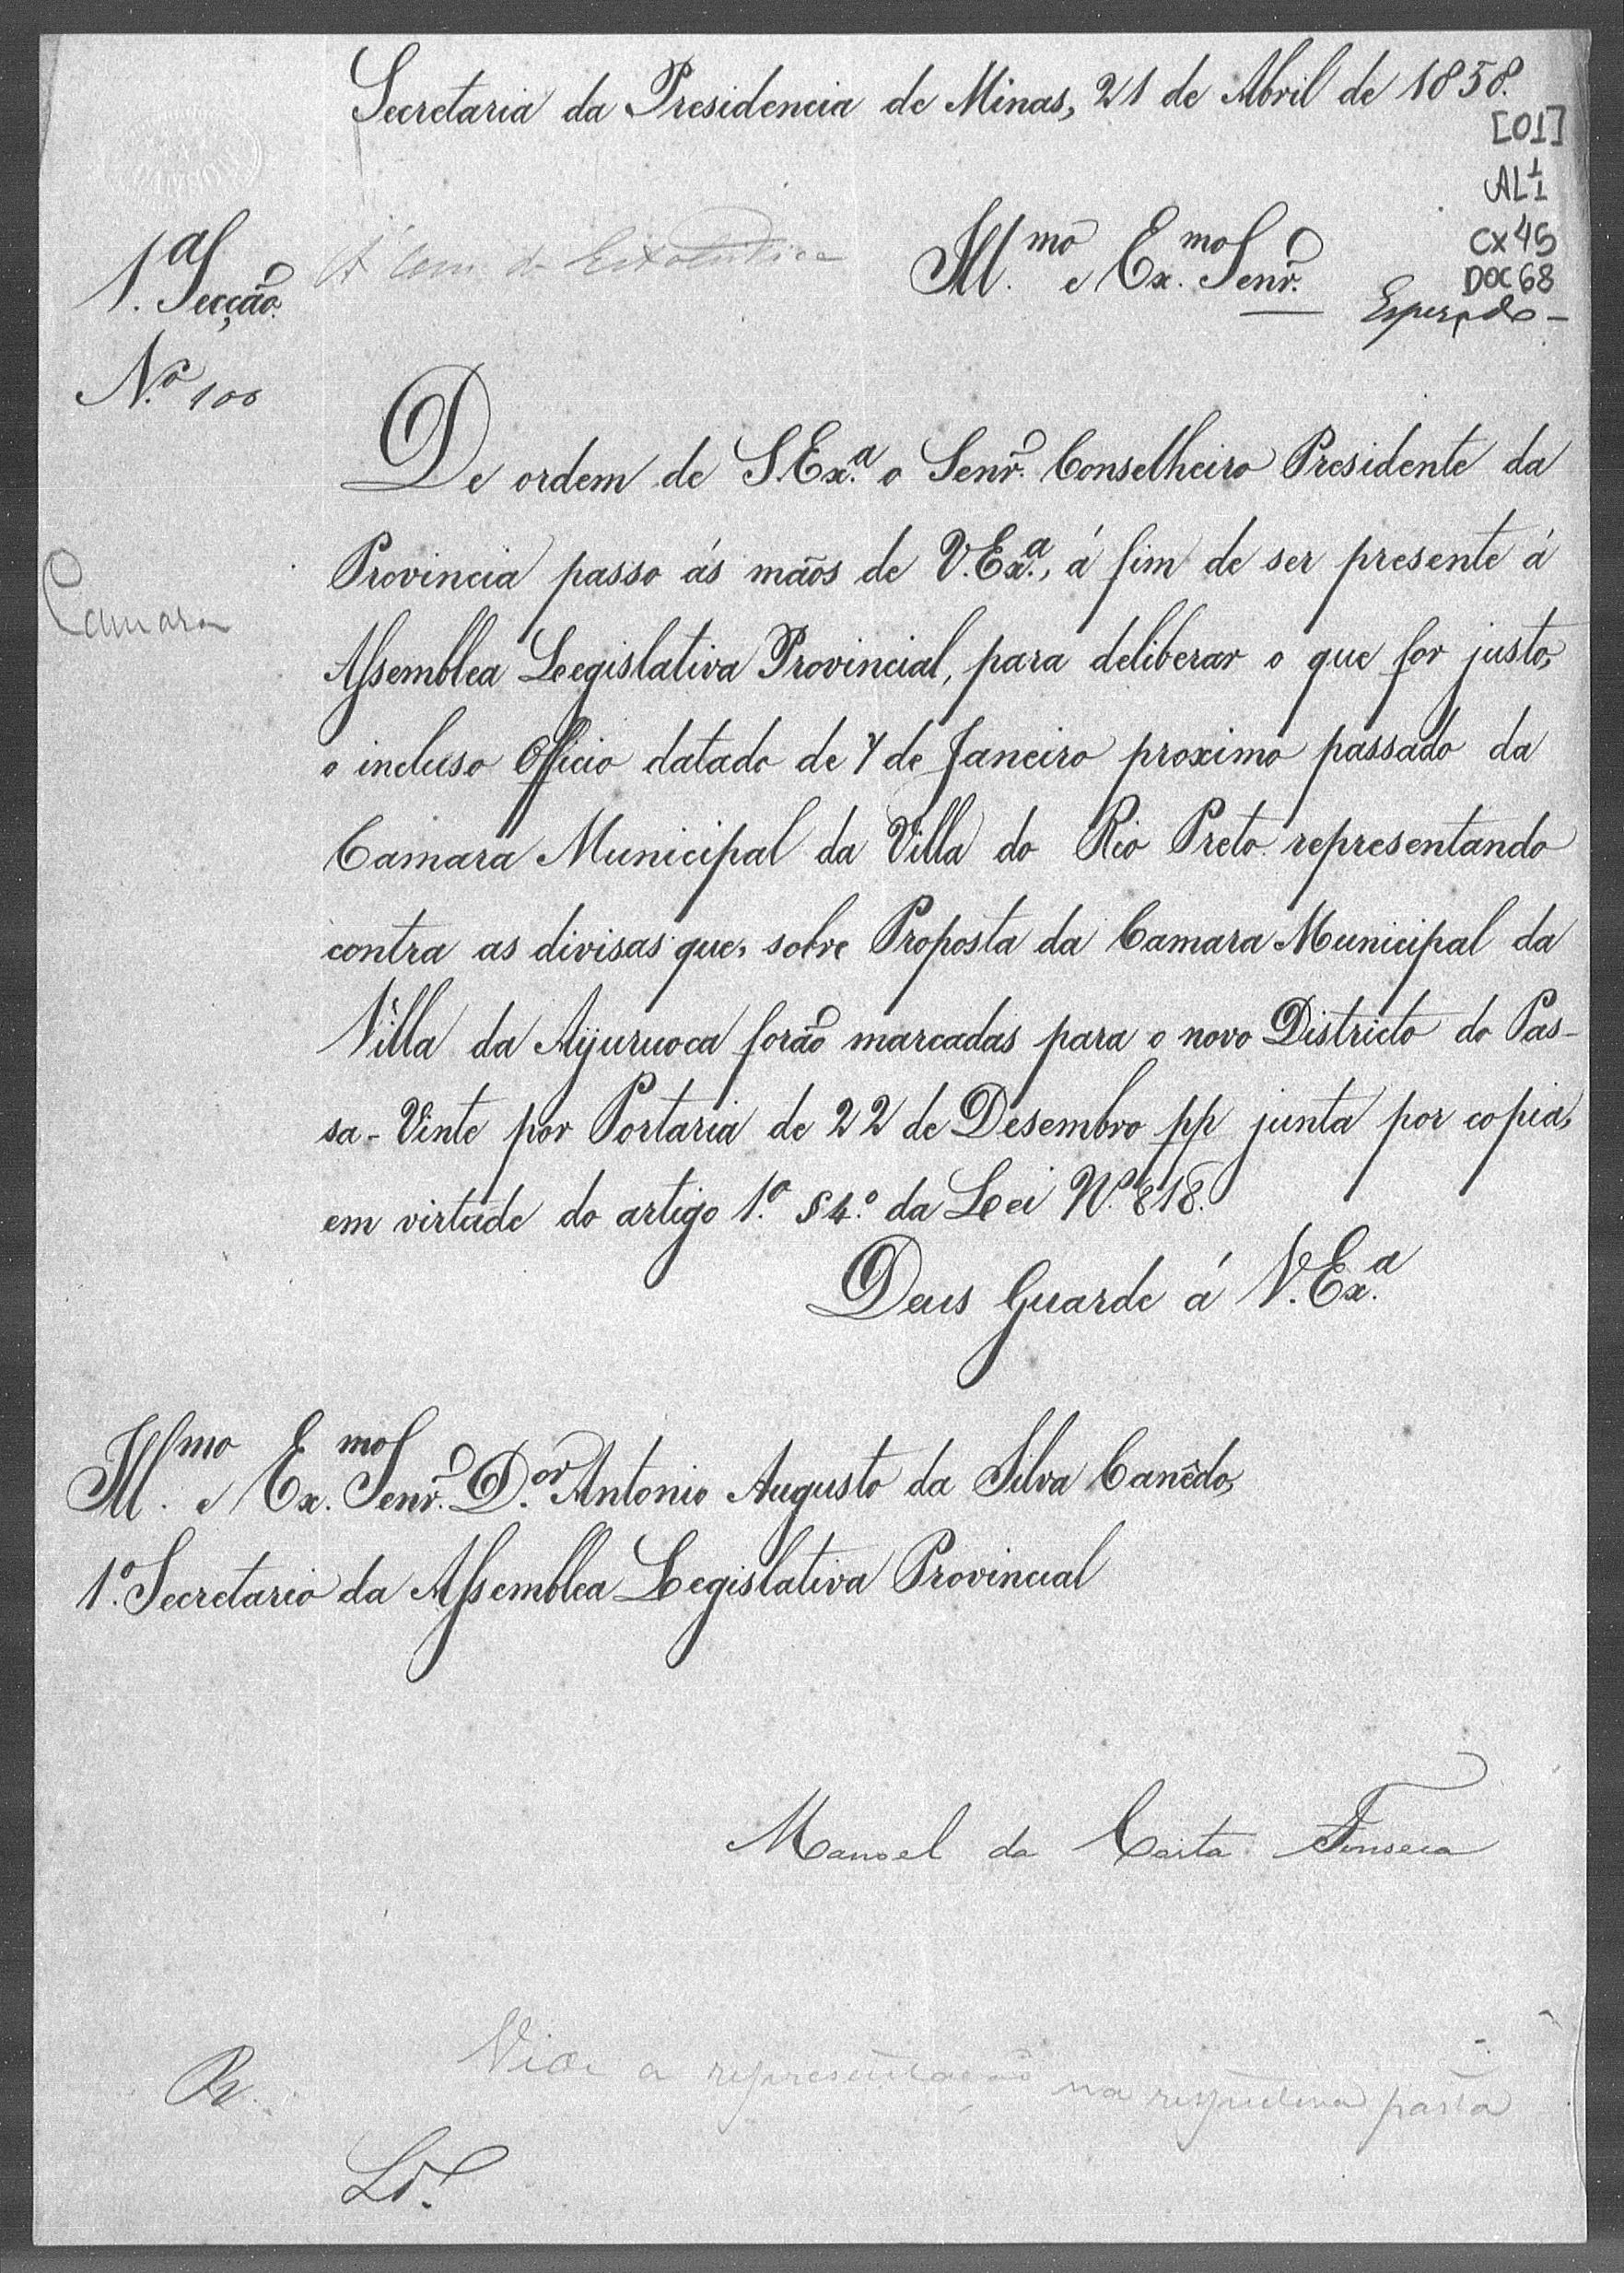 Secretaria da Presidencia de Minas, 21 de Abril de 1858.
[01]
AL 1/1
CX 45
DOC 68
1.ª Secção.
Á Com. de Estatistica
Ill.mo e Ex.mo Senr.
N.º 100
De ordem de S.Ex.ª o Senr. Conselheiro Presidente da
Provincia passo ás mãos de V.Ex.ª, á fim de ser presente á
Camara
Assemblea Legislativa Provincial, para deliberar o que for justo,
o incluso Officio datado de 7 de Janeiro proximo passado da
Camara Municipal da Villa do Rio Preto representando
contra as divisas que, sobre Proposta da Camara Municipal da
Villa da Ayuruoca forão marcadas para o novo Districto do Pas-
sa-Vinte por Portaria de 22 de Desembro pp junta por copia,
em virtude do artigo 1.º § 4.º da Lei N.º 818.
Deus Guarde á V.Ex.ª
Ill.mo e Ex.mo Senr. D.or Antonio Augusto da Silva Canêdo,
1.º Secretario da Assemblea Legislativa Provincial
Manoel da Costa Fonseca
Vide a representação na respectiva pasta